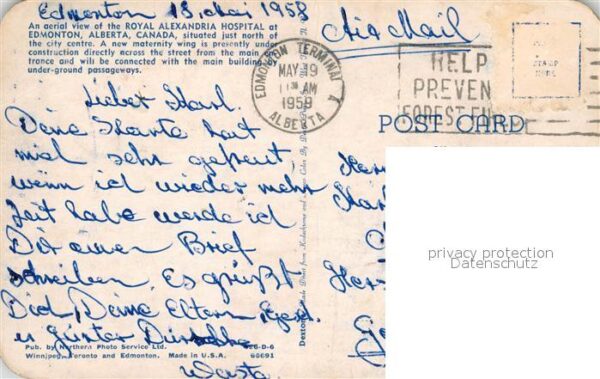 Edmonton 18. Mai 1958
An aerial view of the ROYAL ALEXANDRIA HOSPITAL at
EDMONTON, ALBERTA, CANADA, situated just north of
the city centre. A new maternity wing is presently under
construction directly across the street from the main
trance and will be connected with the main building by
under-ground passageways.
Air Mail
EDMONTON TERMINAL A
MAY 19
11 AM
1959
ALBERTA
HELP
PREVEN
FOREST FI
STAMP
HERE
POST CARD
Lieber Karl.
Deine Karte hat
mich sehr gefreut
wenn ich wieder mehr
Zeit habe werde ich
Dir einen Brief
schreiben. Es grüßt
Dich, Deine Eltern,
u Günter
Pub. by Northern Photo Service Ltd.
Winnipeg, Toronto and Edmonton. Made in U.S.A.
60691
privacy protection
Datenschutz